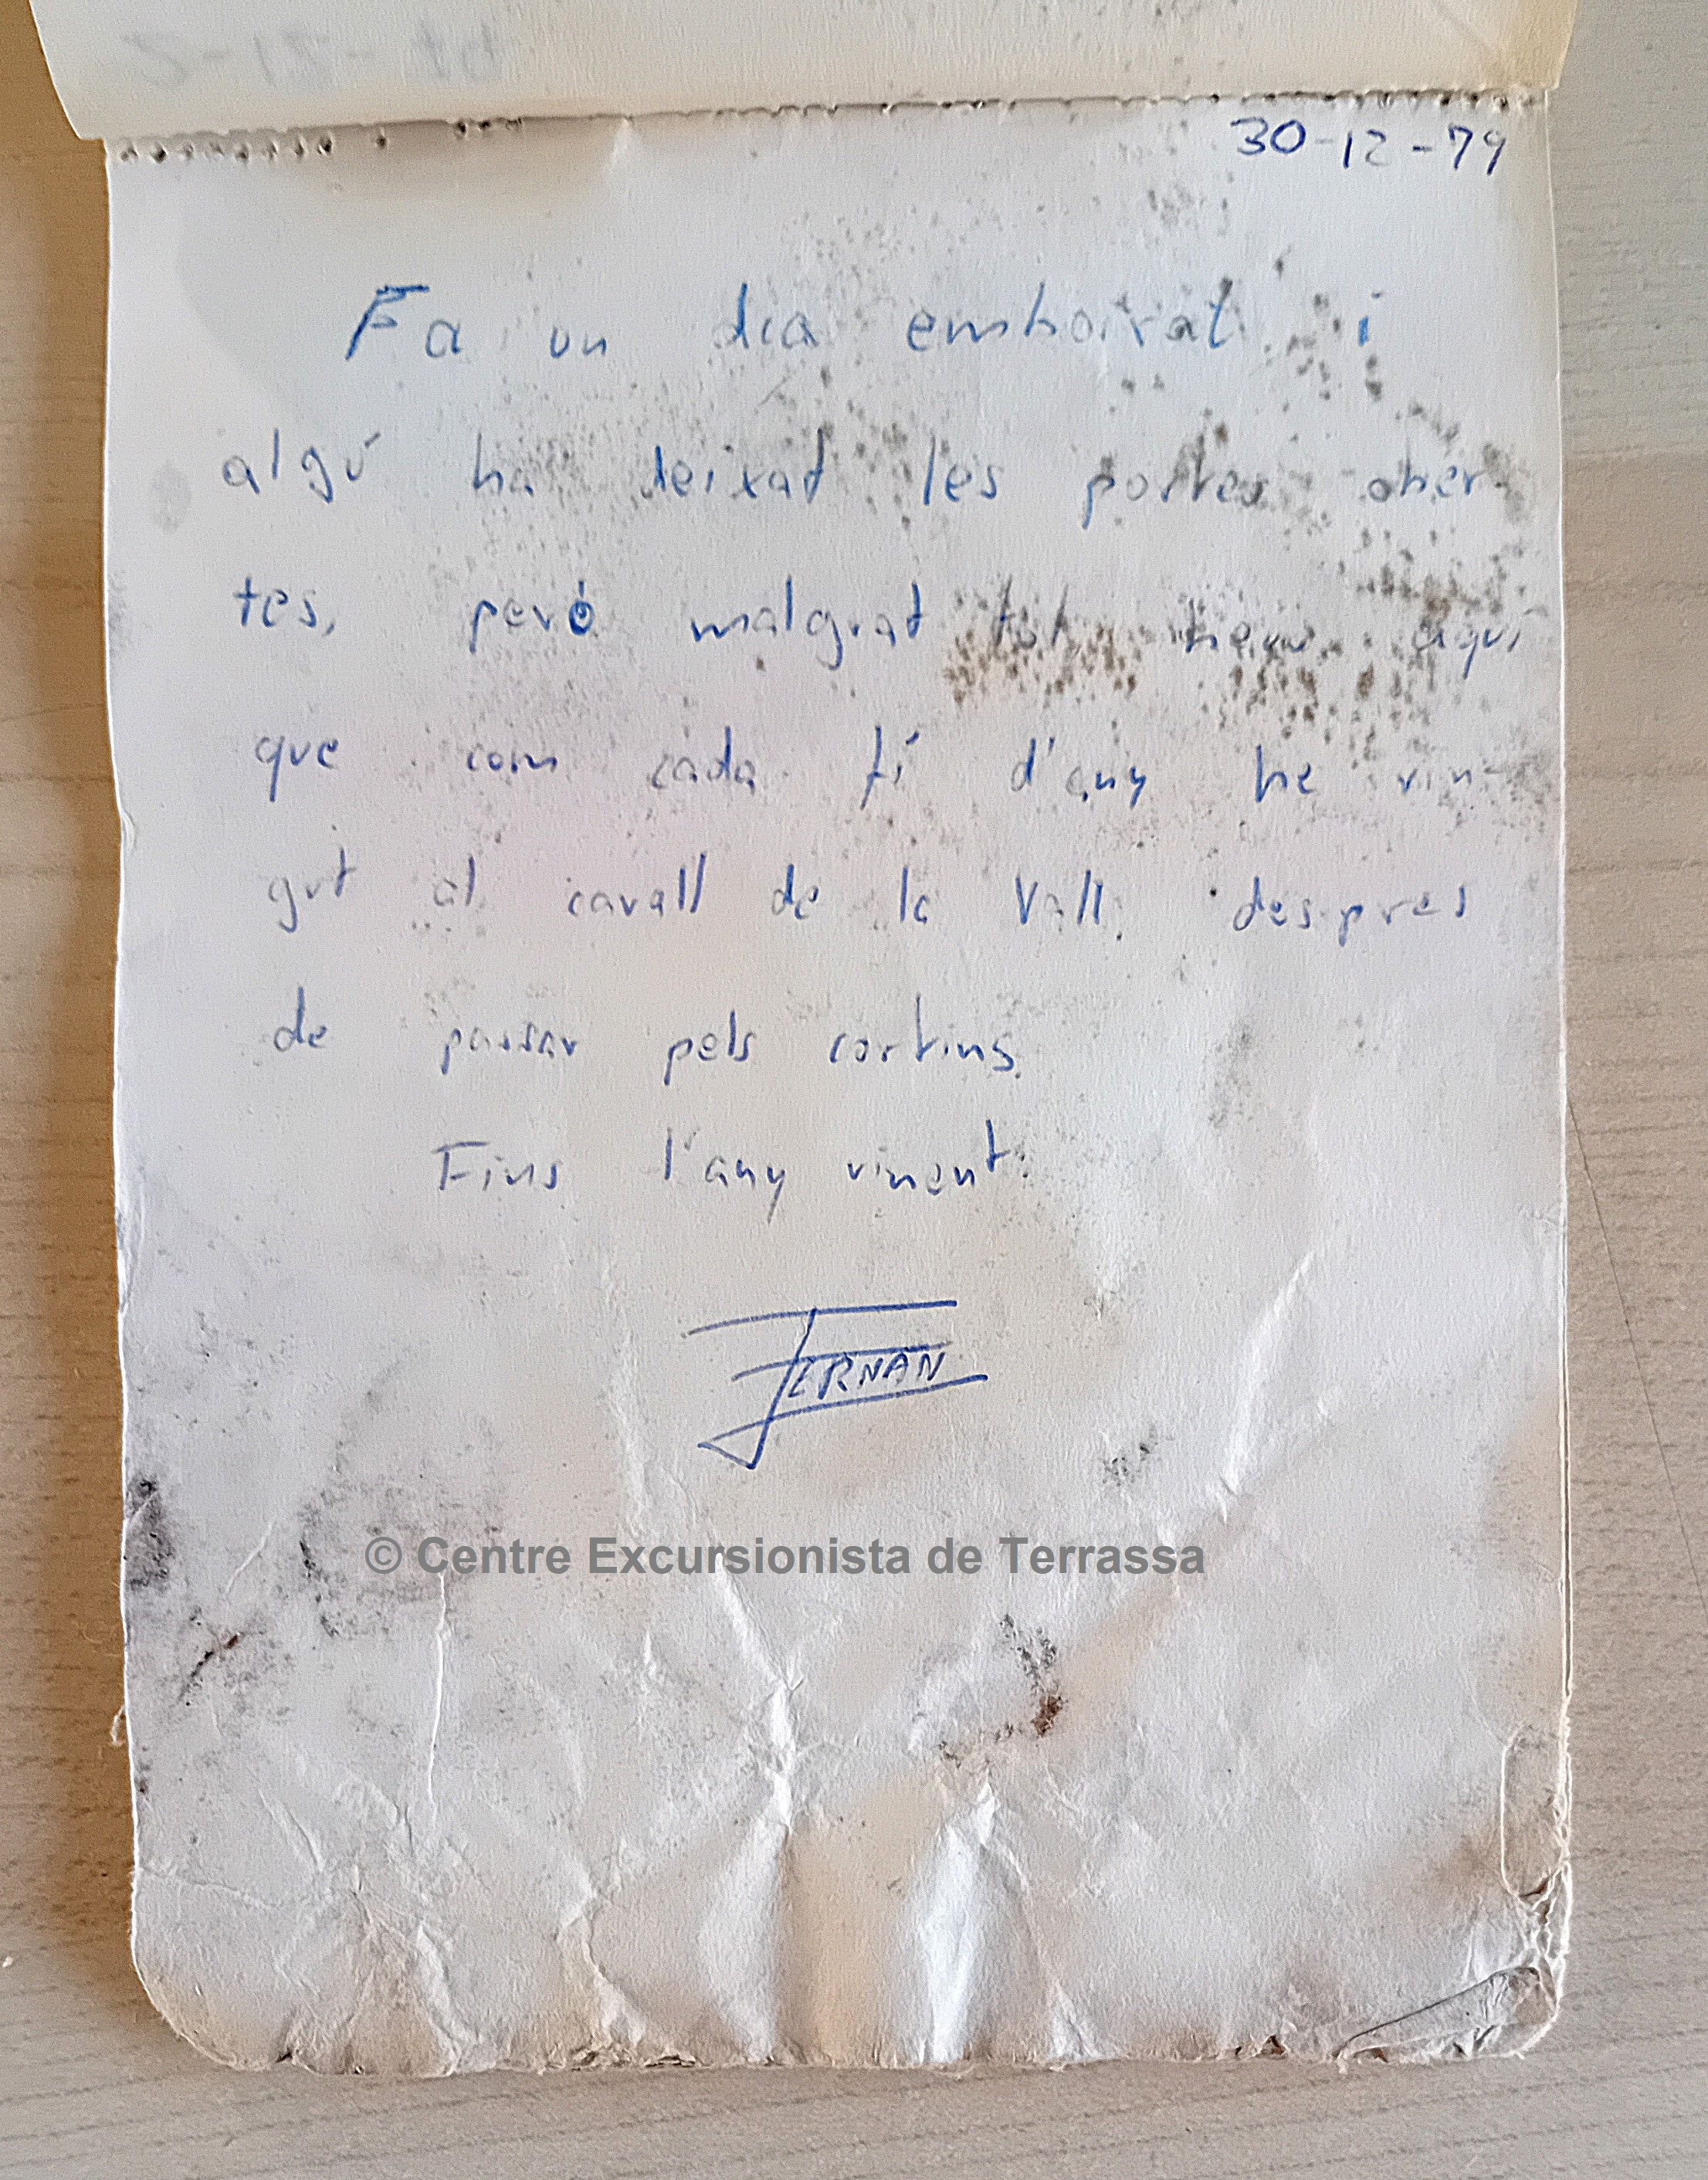 30-12-79
Fa un dia emboirat i
algú ha deixat les portes ober-
tes, però malgrat tot heus aquí
que com cada fí d'any he vin-
gut al cavall de la Vall despres
de passar pels cortins.
Fins l'any vinent.
FERNAN
© Centre Excursionista de Terrassa